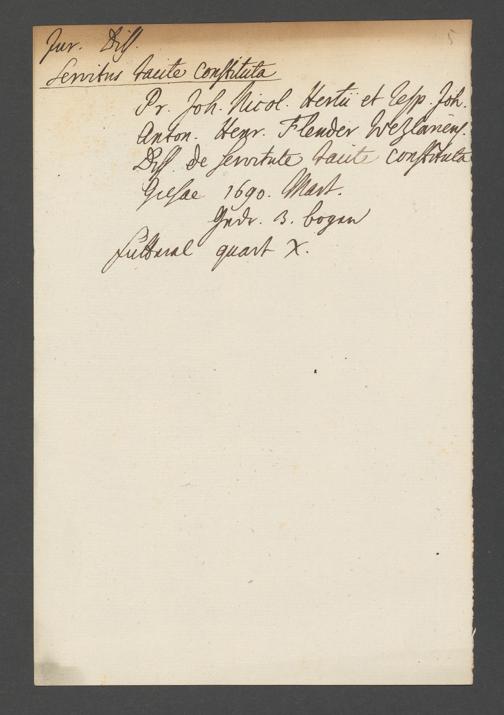 5
Jur. Diss.
Servitus tacite constituta
Pr. Joh. Nicol. Hertii et Resp. Joh.
Anton. Henr. Flender Wezlariens.
Diss. de Servitute tacite constituta
Giesae 1690. Mart.
Gedr. 3. bogen
quart X.